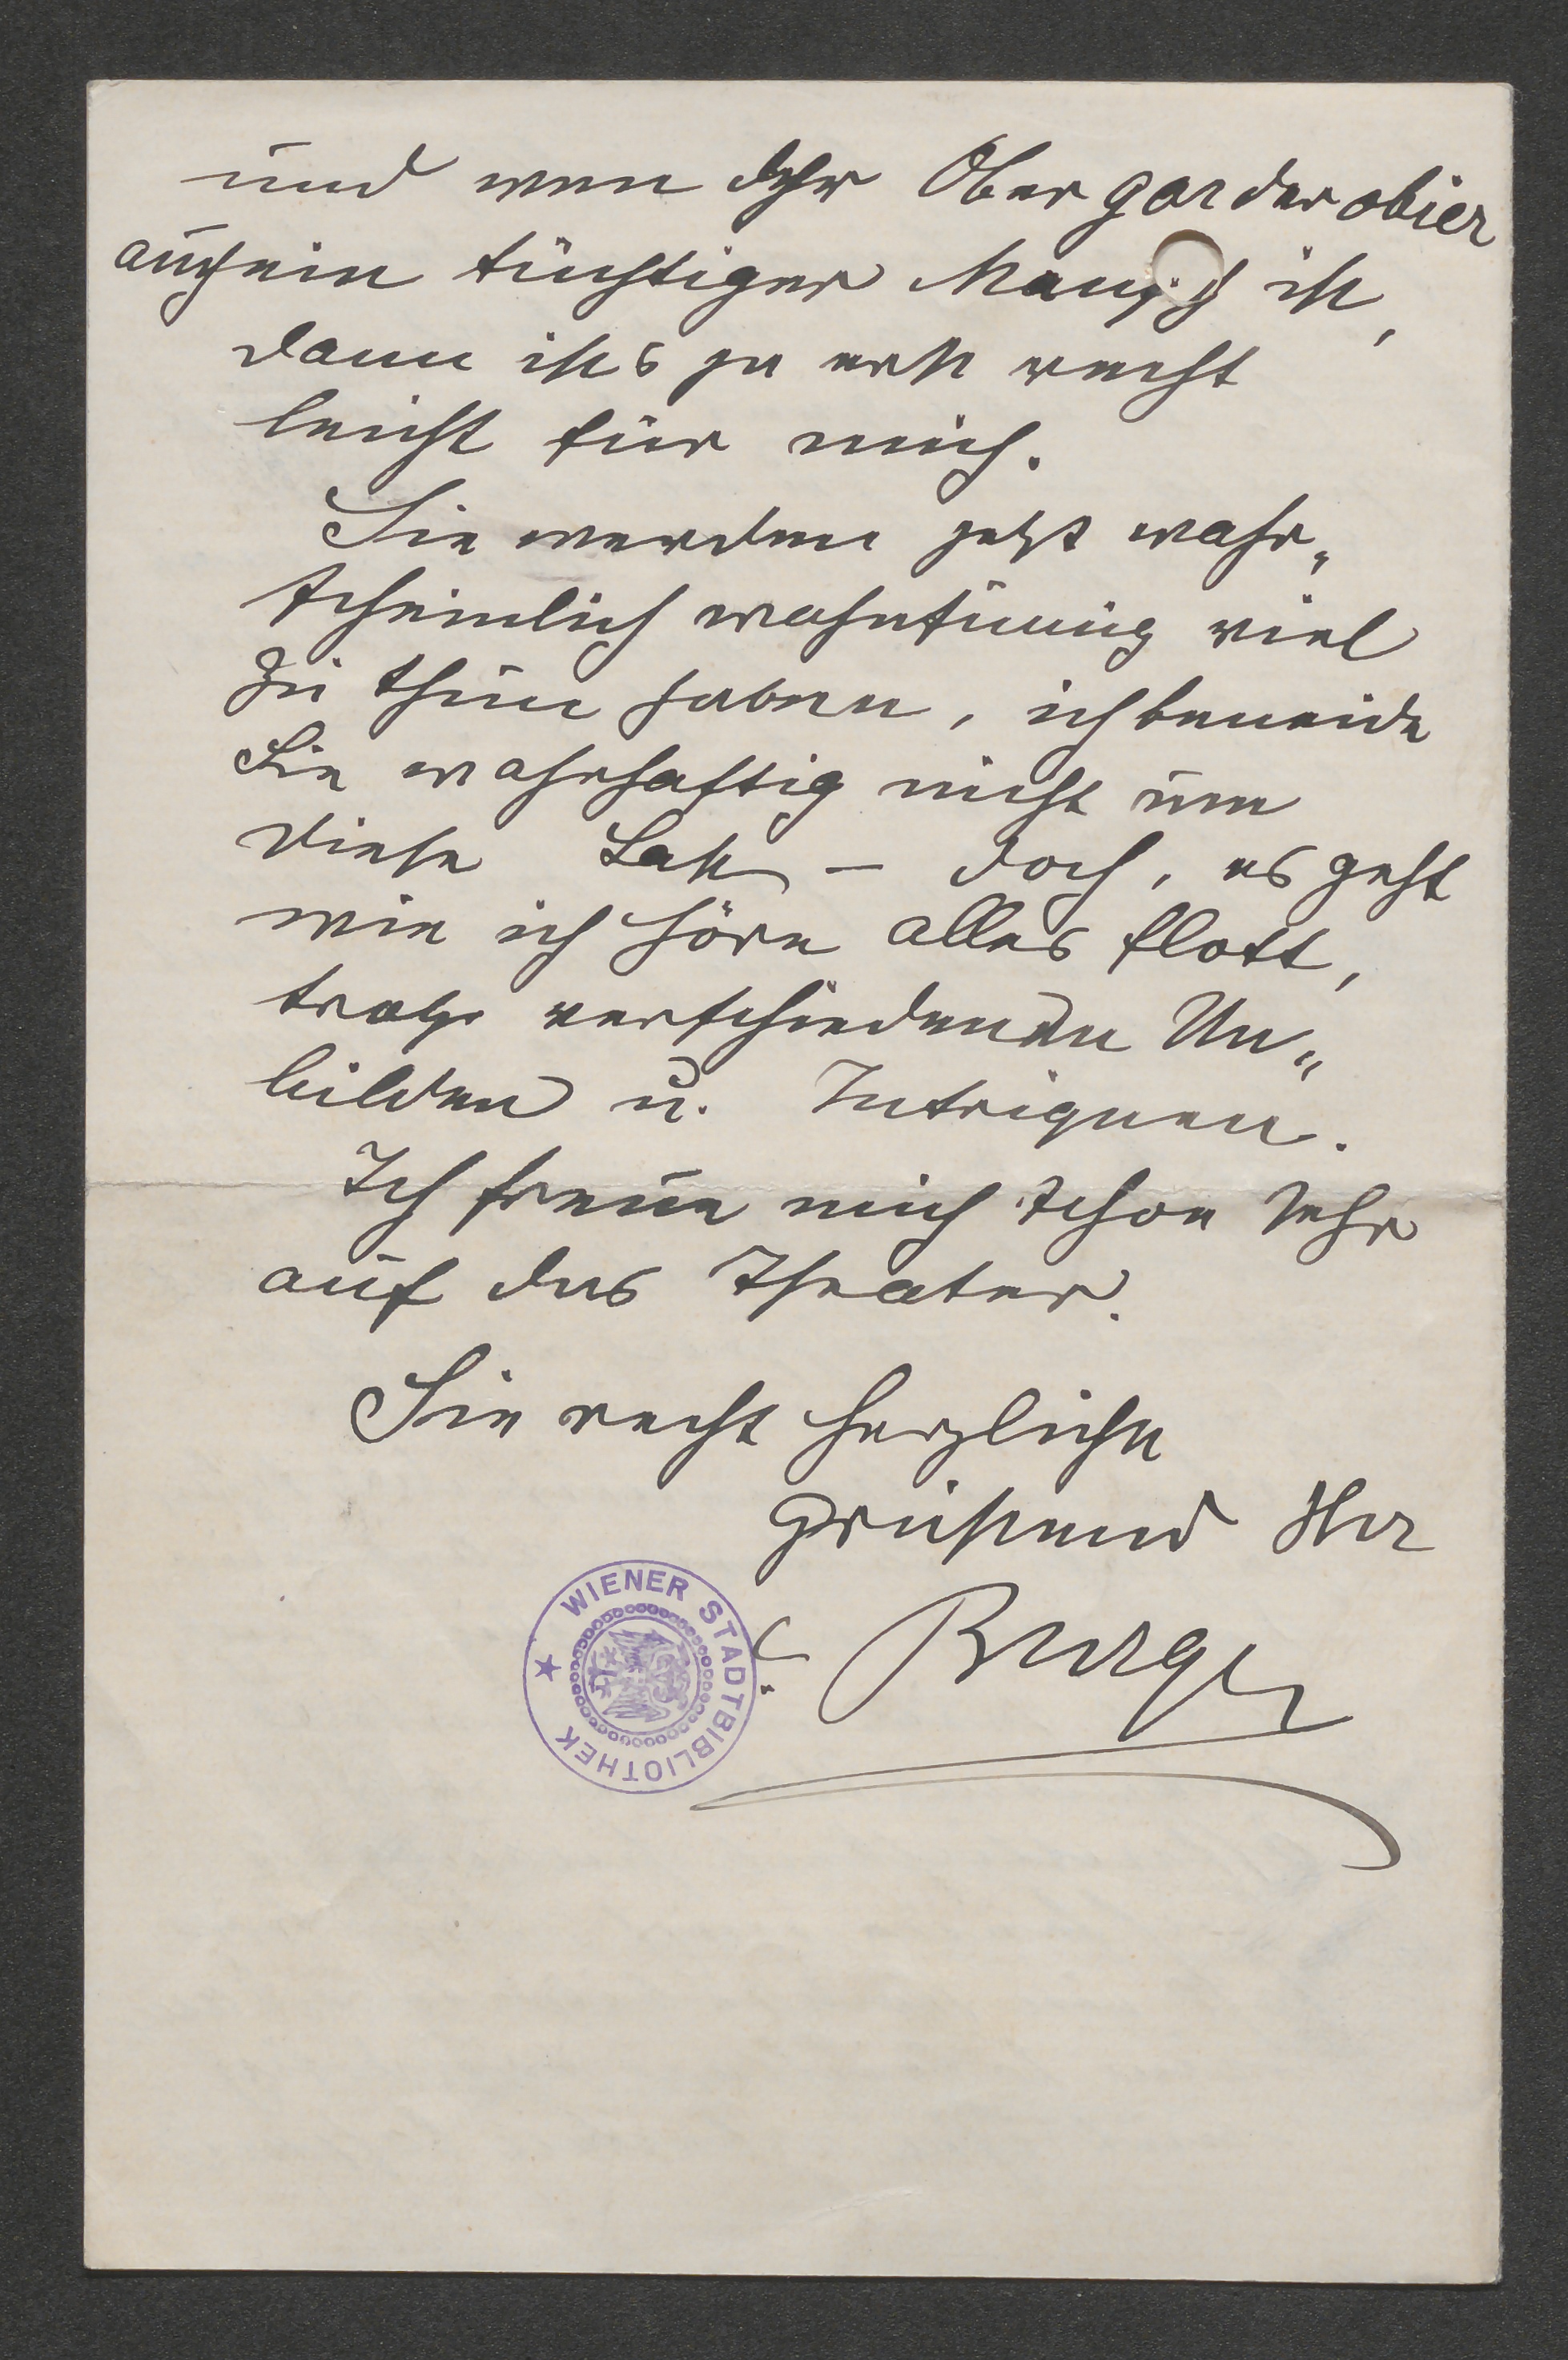 und wenn der Obergarderobier
auch ein tüchtiger Mensch ist,
dann ists ja erst recht
leicht für mich.
Sie werden jetzt wahr„
scheinlich wahnsinnig viel
zu thun haben, ich beneide
Sie wahrhaftig nicht um
diese Last – doch, es geht
wie ich höre alles flott,
trotz verschiedenen Un„
bilden u. Intriguen.
Ich freue mich schon sehr
auf das Theater.
Sie recht herzlichst
grüßend Ihr
Burger
WIENER STADTBIBLIOTHEK